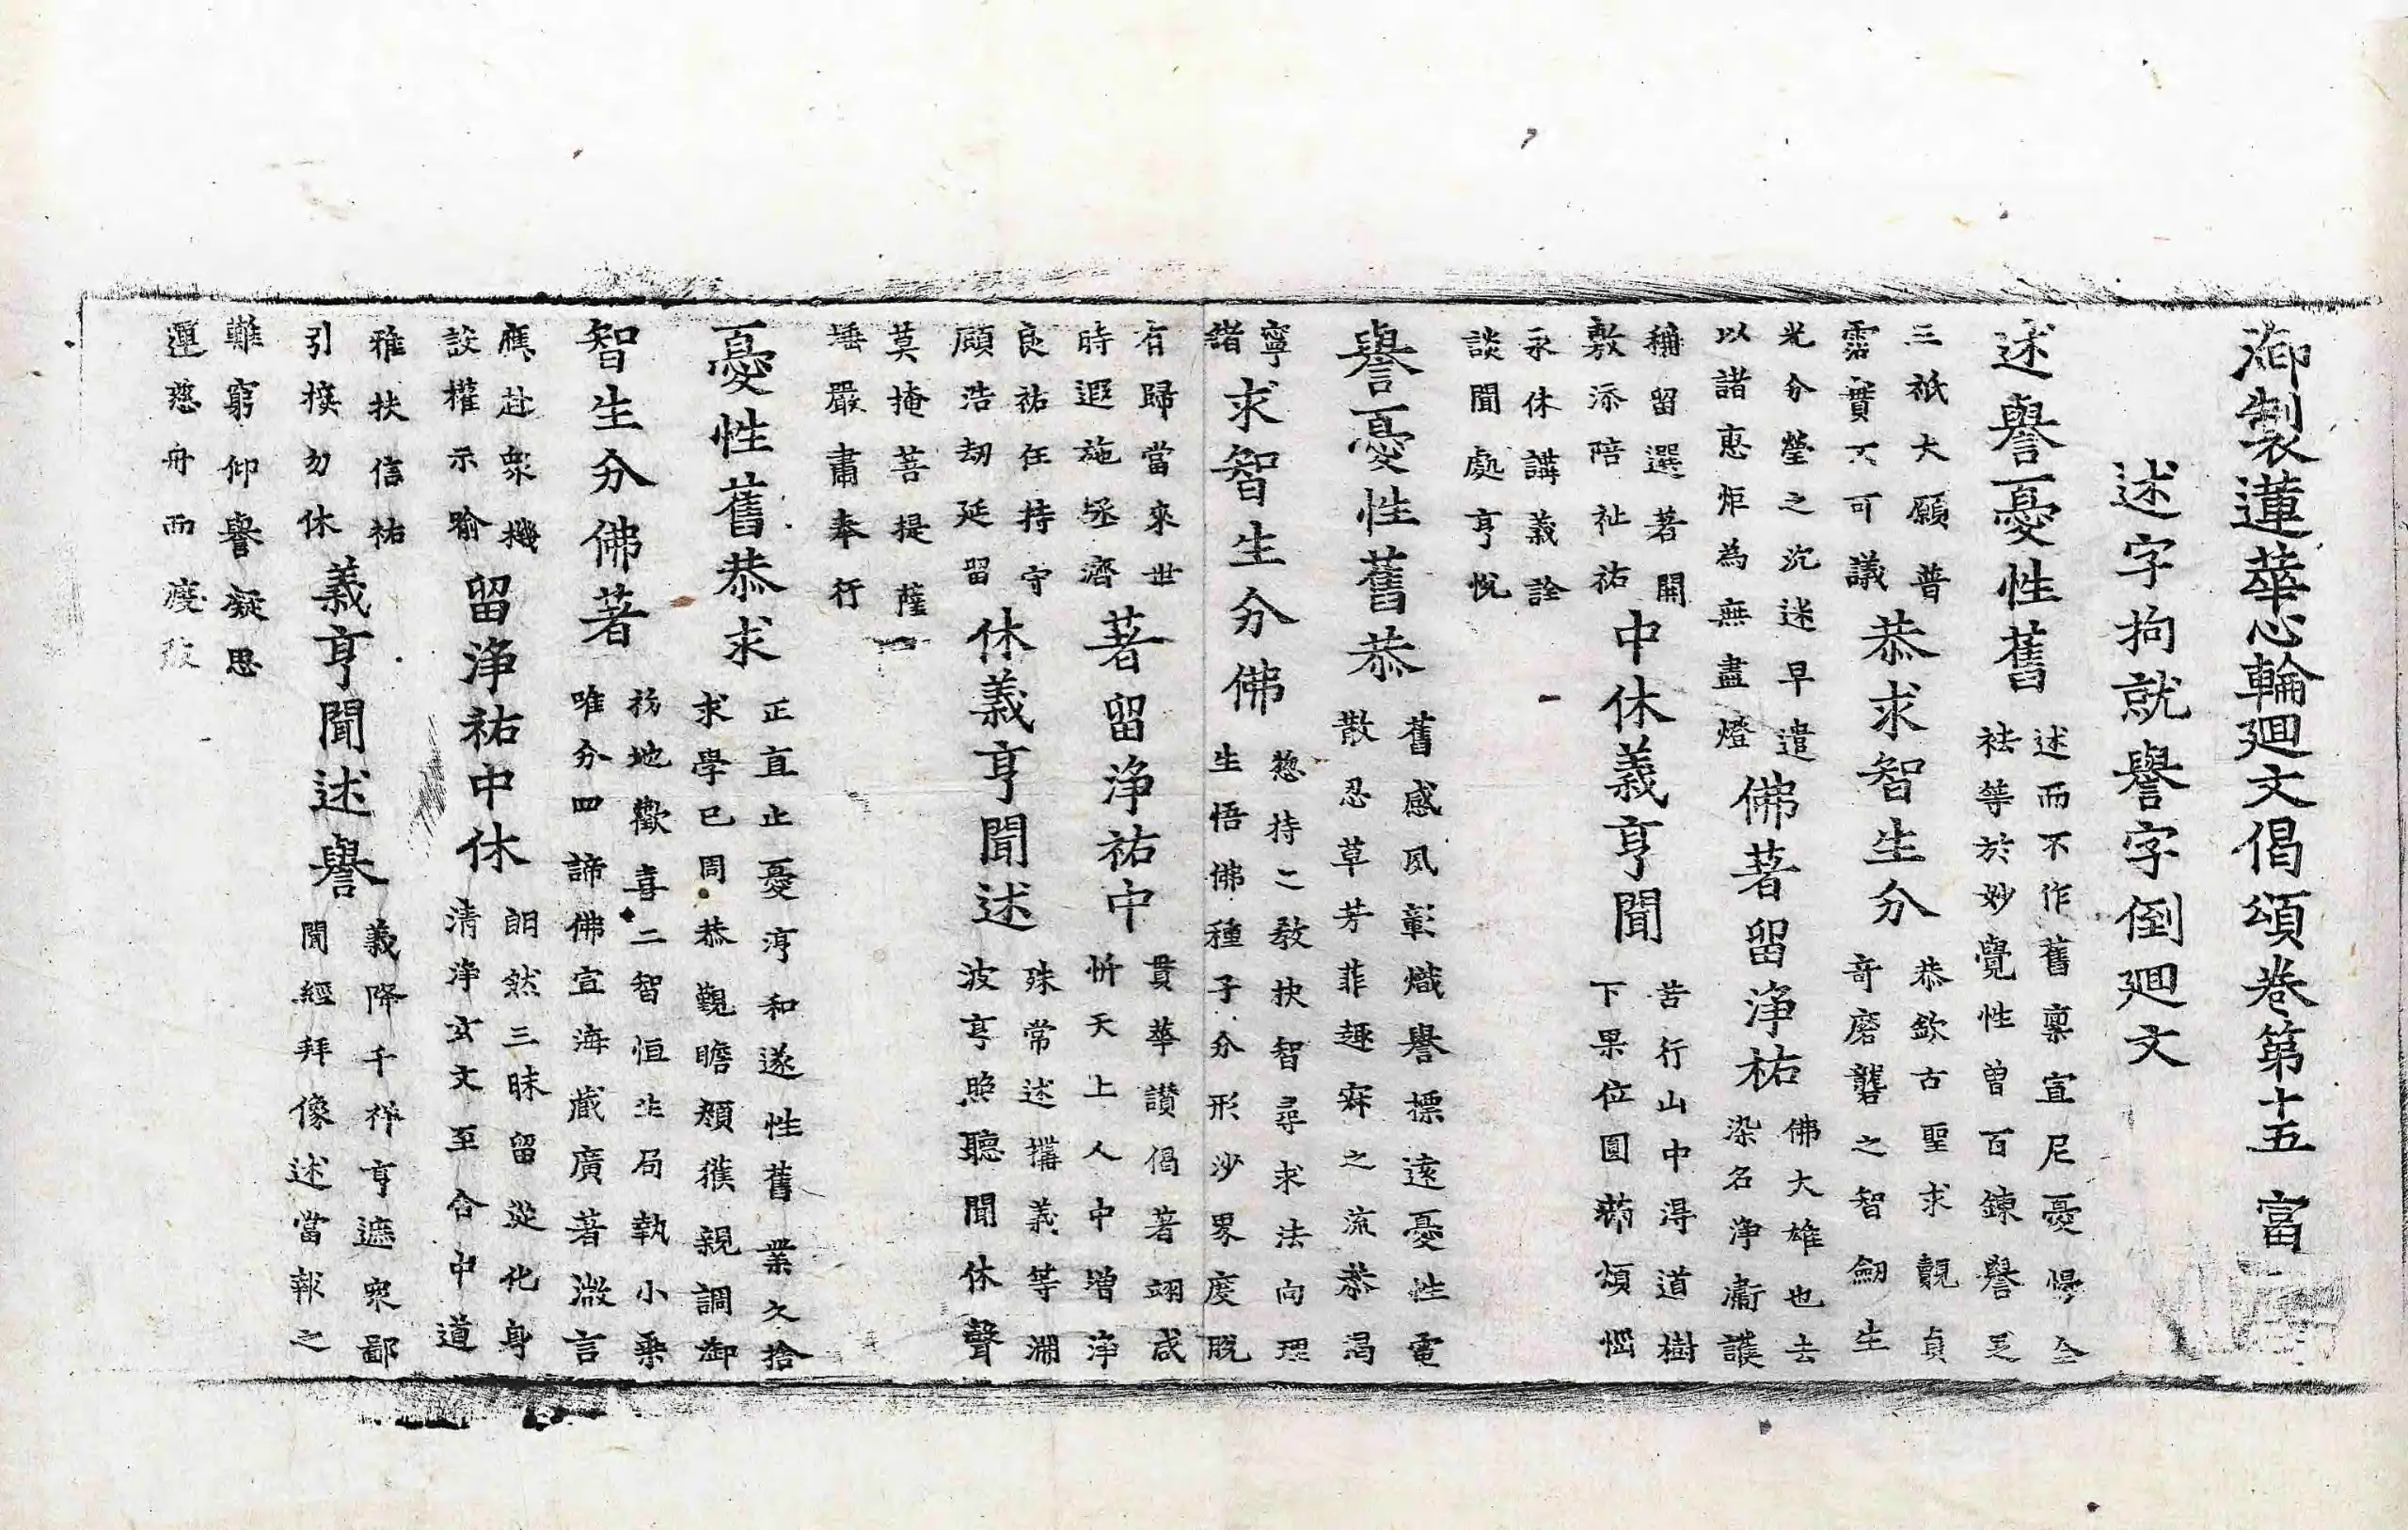 御製蓮華心輪廻文偈頌卷第十五 富
述字拘就譽字倒廻文
述譽憂性舊
述而不作舊稟宣尼憂惕全
祛等於妙覺性曾百鍊譽
三祇大願普
霑實不可議
恭求智生分
恭欽古聖求覩貞
奇磨礱之智劒生
光分瑩之沉迷早遣
以諸惠炬為無盡燈
佛著留淨祐
佛大雄也去
染名淨肅護
稱留選著開
敷添陪祉祐
中休義亨聞
苦行山中得道樹
下果位圓煩惱
永休講義詮
談聞處亨悅
譽憂性舊恭
舊感夙彰熾譽摽遠憂性電
散忍草芳菲趣寂之流恭渴
寧
諸
求智生分佛
惣持二教抉智尋求法向理
生悟佛種子分形沙界度脫
有歸當來世
時遐施拯濟
著留淨祐中
貫華讃偈著翊咸
忻天上人中增淨
良祐任持守
願浩劫延留
休義亨聞述
殊常述搆義等淵
波亨照聽聞休聲
莫掩菩提薩
埵嚴肅奉行
憂性舊恭求
正直止憂渟和遂性舊業久捨
求學已周恭觀瞻獲親調御
智生分佛著
初地歡喜二智恒生局執小乘
唯分四諦佛宣海藏廣著微言
應赴衆機
設權示喻
留淨祐中休
朗然三昧留從化身
清淨玄文至合中道
雅扶信祐
引摸勿休
義亨聞述譽
義降千神亨遮衆鄙
聞經拜像述當報之
難窮仰譽凝思
運慈舟而